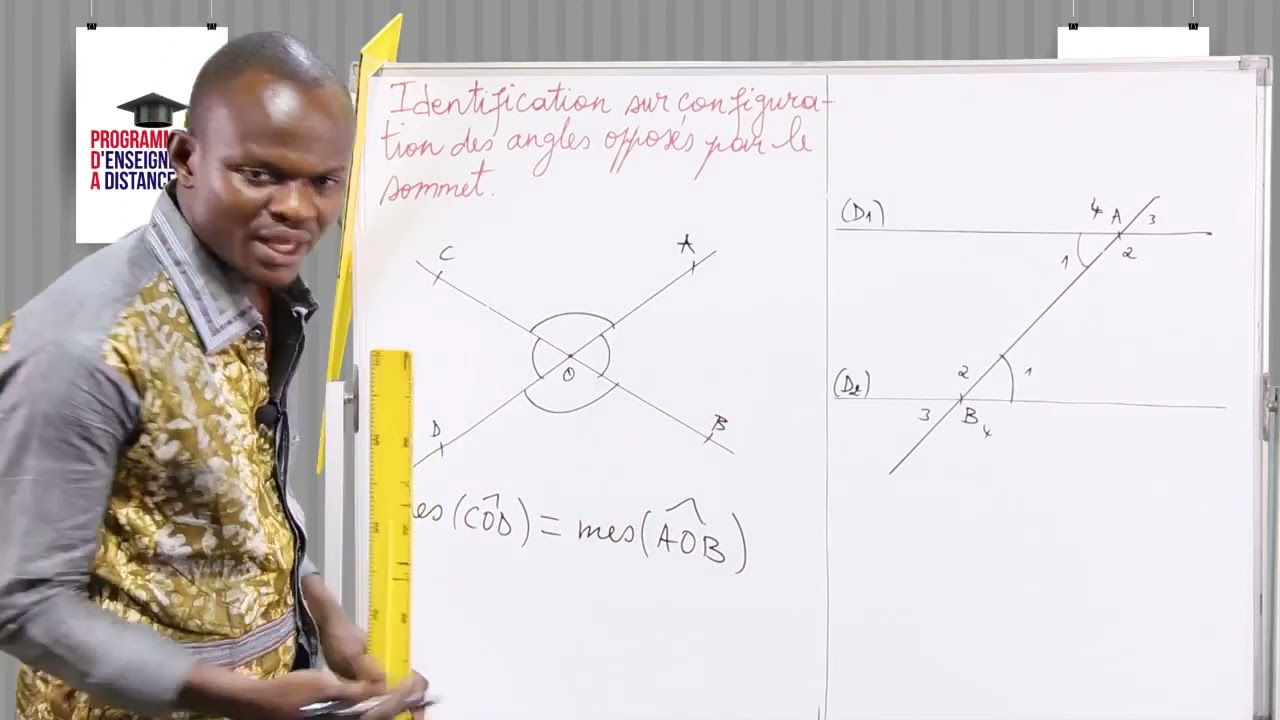 PROGRAMM
D'ENSEIGN
A DISTANCE
Identification sur configura-
tion des angles opposés par le
sommet.
C
A
O
D
B
es(COD) = mes(AOB)
(D1)
4 A 3
1
2
(D2)
2
1
3 B 4